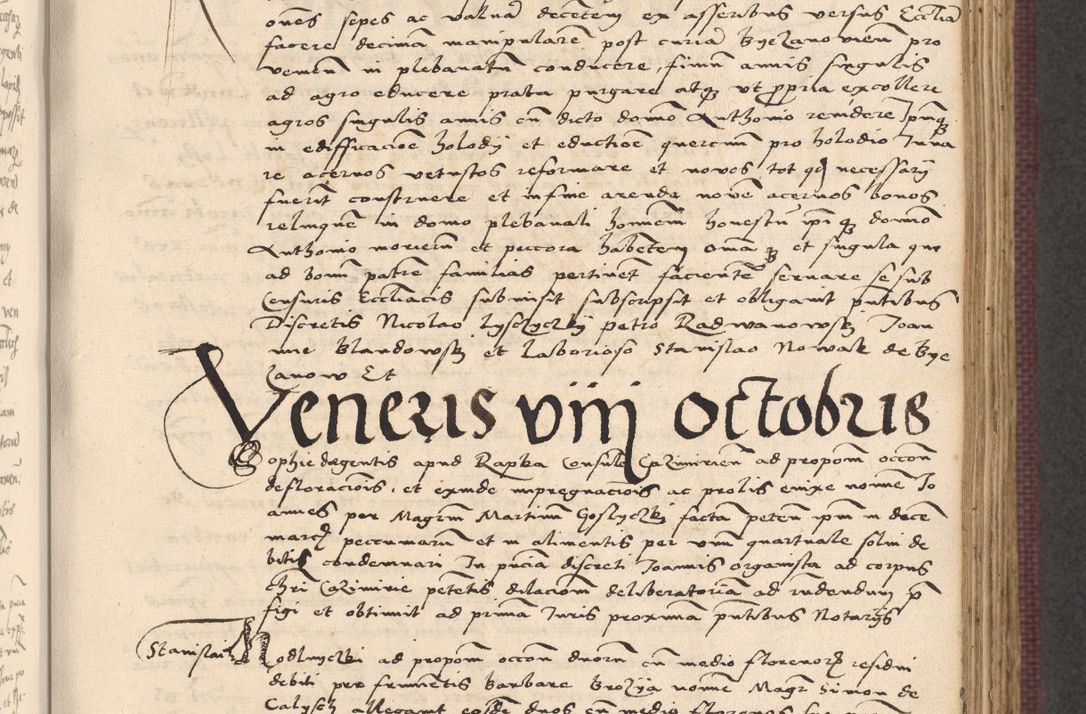 ones sepes ac valuã decentem ex asseribus versus Eccliã
facere decimã manipularẽ post curiã Byezanovien pro
vemen in plebanatũ conducere, fimũ annis singulis
ad agro educere prata purgare atq ut propria excollere
agros singulis annis cũ dicto domo Anthonio reñdere Ipumq
in edifficacioẽ holody et eductioẽ quercuum pro holodio Iuua
re acernos vetustos reformare et novos tot qd necessarÿ
fuerit construere et in fine arende novẽ acernos bonos
relinquẽ in domo plebanali hominem honestũ ipi q domino
Anthonio moriem et peccora habentem omã q et singula que
ad bonũ patrẽ familias pertinet facientẽ servare se sub
Censuris Eccliacis submisit subscripsit et obligavit pñtibus
Discretis Nicolao Lysczyczky petro Radwanowsky Joan
nne Blandowsky et Laborioso Stanislao Nowak de Bye
zanow Et
Veneris viij octobris
Sophie degentis apud Rapka Consulẽ Cazimirien ad propom occon
defloracionis et exinde impregnacionis ac prolis enixe nomine Jo
annes per Magrm Martinũ Goslyczki facta peten ipm in decẽ
marcis peccuniarũ et in alimentis per unũ quartuale solui de
bitis condemnari In pñcia discreti Joannis organista ad corpus
chri Cazimirie petentis dilacionẽ deliberatoriã ad respndendum p
figi et obtinuit ad primã Juris proximã pñtibus Notarijs
Stanislai Modlniczki ad propom occon duorũ cũ medio florenorũ residui
debiti pro frumentis Barbare Brozÿa nomine Magri Simon de
Calysch allegavit eosdẽ duos cũ medio florenos